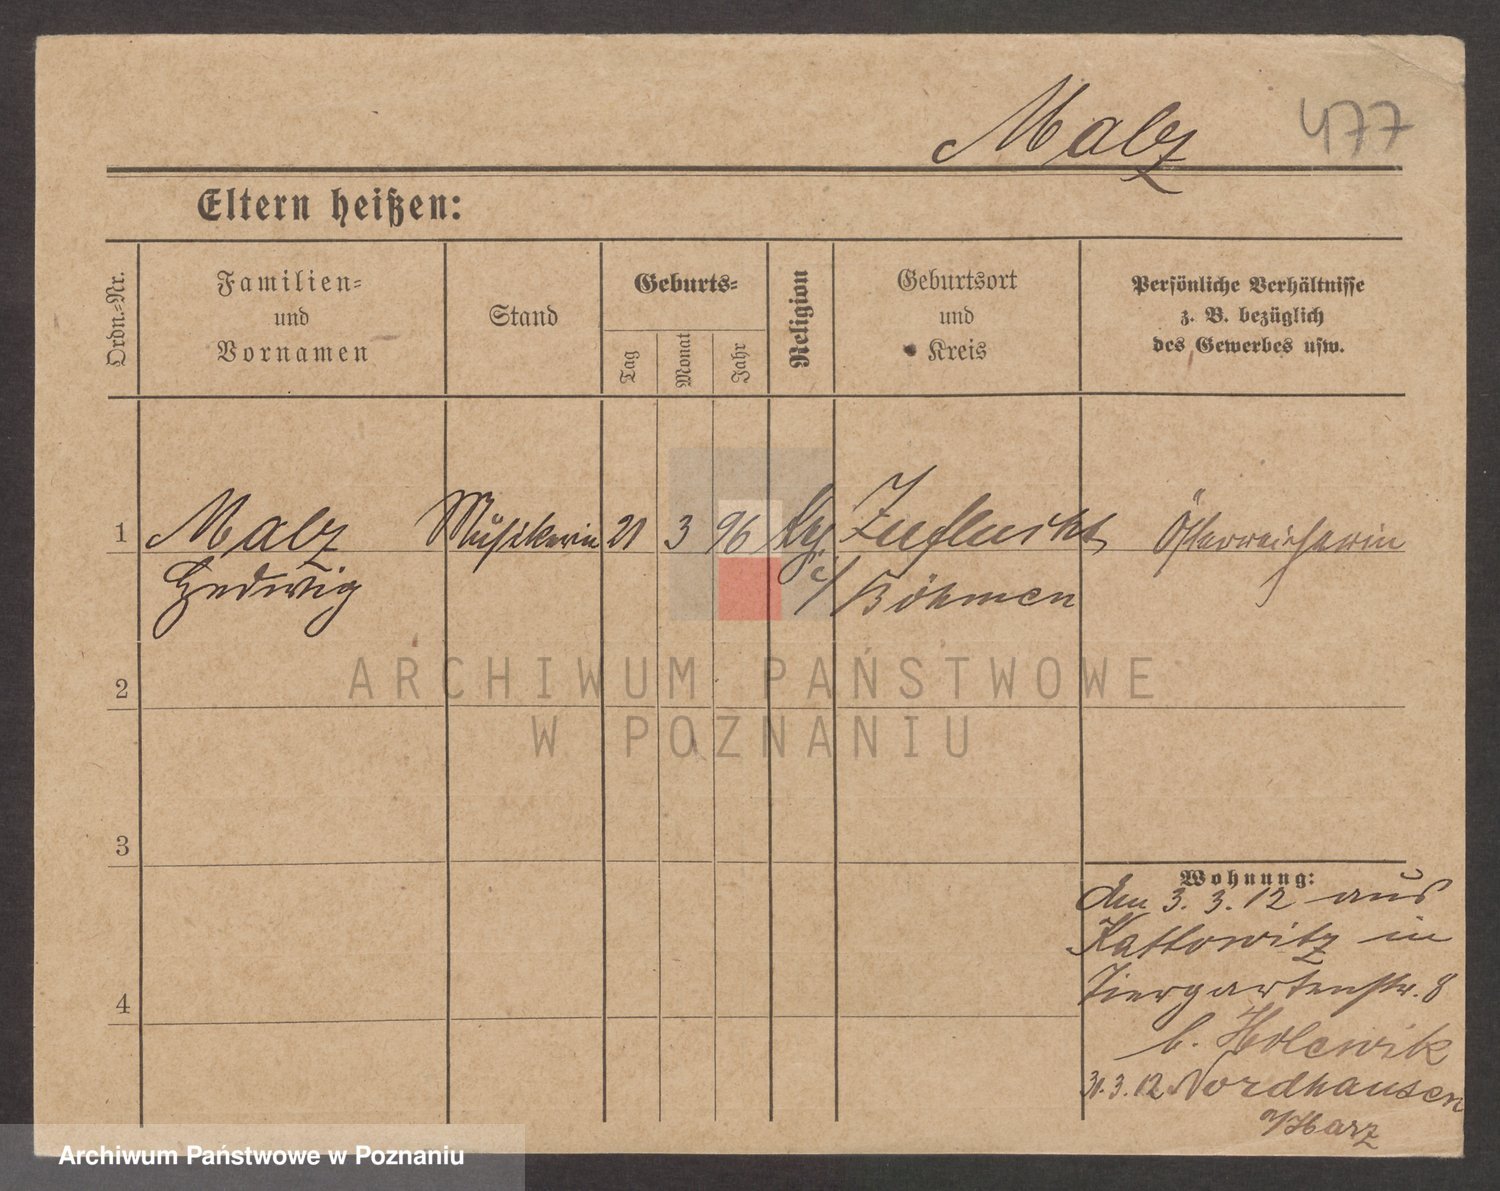 Malz 477
Eltern heißen:
Ordn.-Nr.
Familien-
und
Vornamen
Stand
Geburts-
Tag
Monat
Jahr
Religion
Geburtsort
und
Kreis
Persönliche Verhältnisse
z. B. bezüglich
des Gewerbes usw.
1 Malz Musikerin 21 3 96 Österreicherin
Hedwig i/ Böhmen
2
3
4
Wohnung:
den 3. 3. 12 aus
Kattowitz in
Tiergartenstr. 8
b. Holewik
31.3.12 Nordhausen
a/Harz
ARCHIWUM PAŃSTWOWE
W POZNANIU
Archiwum Państwowe w Poznaniu